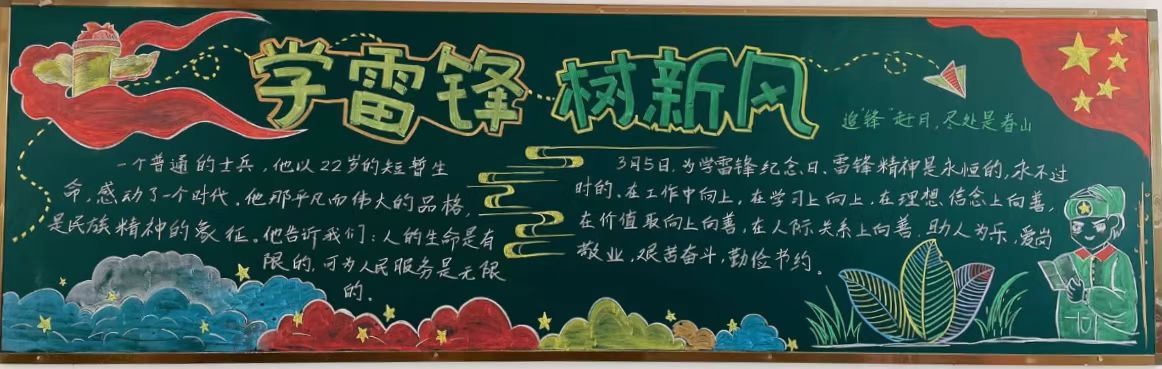 学雷锋 树新风
追“锋”赶月,尽处是春山
一个普通的士兵,他以22岁的短暂生
命,感动了一个时代。他那平凡而伟大的品格,
是民族精神的象征。他告诉我们:人的生命是有
限的,可为人民服务是无限
的。
3月5日,为学雷锋纪念日、雷锋精神是永恒的,永不过
时的、在工作中向上,在学习上向上,在理想、信念上向善,
在价值取向上向善,在人际关系上向善、助人为乐,爱岗
敬业,艰苦奋斗,勤俭节约。